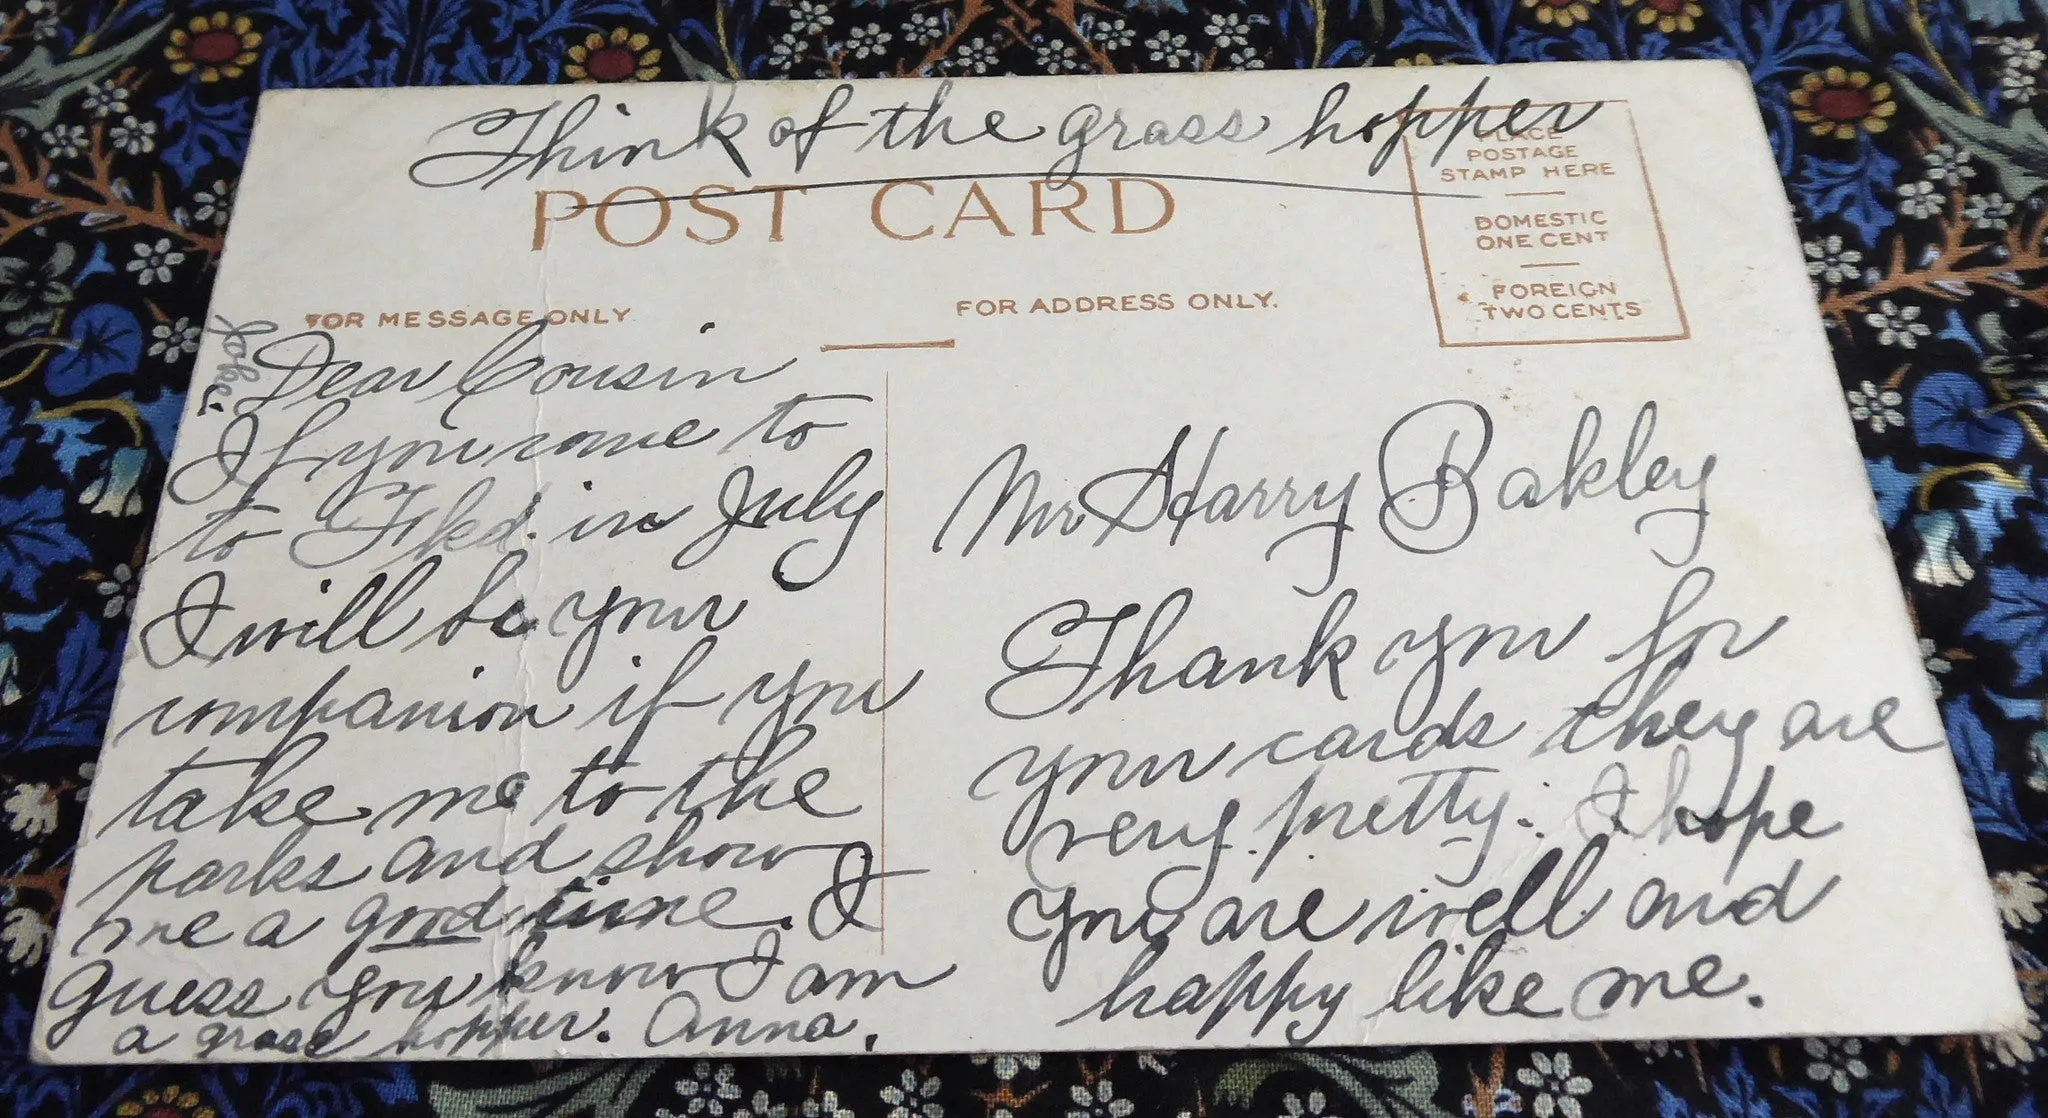 Think of the grass hopper
POST CARD
PLACE
POSTAGE
STAMP HERE
DOMESTIC
ONE CENT
FOREIGN
TWO CENTS
FOR MESSAGE ONLY
FOR ADDRESS ONLY.
Dear Cousin
If you come to
to in July
I will be your
companion if you
take me to the
parks and show
me a good time. I
guess you know I am
a grass hopper. Anna.
Mr Harry Bakley
Thank you for
your cards they are
very pretty. I hope
you are well and
happy like me.